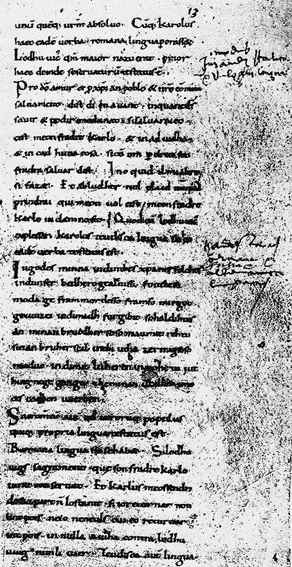 13
unū quēq; urm̄ absoluo. Cūq; karolus
haec eadē uerba romana lingua perorasset
Lodhuuic' qm̄ maior natu erat prior
haec deinde se seruaturū testatus ē
Pro dō amur & p xp̄ian poblo & nr̄o commun
saluament. dist di in auant. in quant ds
sauir & podir me dunat. si saluarai eo
cist meon fradre karlo. & in aiudha
& in cad huna cosa. sicū om p dreit son
fradra saluar dift. Ino quid il mi altre
si fazet. Et ab ludher nul plaid nūquā
prindrai qui meon uol cist meon fradre
karle in damno sit. Quod cū lodhuuic'
explesset. karolus teudisca lingua sic hec
eadē uerba testatus est.
In godes minna indinthes xp̄anes folches
indunser bedhero gealtnissi. fonthese
moda ge frammordesso framso mirgot
geuuizci indimadh furgibit so haldih tes
an minan bruodher soso man mit rehtu
sinan bruher scal inthi utha zermig soso
maduo. indi mit luheren in noheiniu
thing ne geganga. zhe minan uuillon imo
ce scadhen uuerhen.
Sacramentū autē qd utrorumq; populus
quiq; propria lingua testatus est
Romana lingua sic se habet. Si lodhu
uigs sagrament. que son fradre karlo
iurat conseruat. Et karlus meos sendra
de suo part n lostanit. si io returnar non
lint pois. ne io ne neuls cui eo returnar
int pois. in nulla aiudha contra lodhu
uuig nun li iuer. Teudisca autē lingua